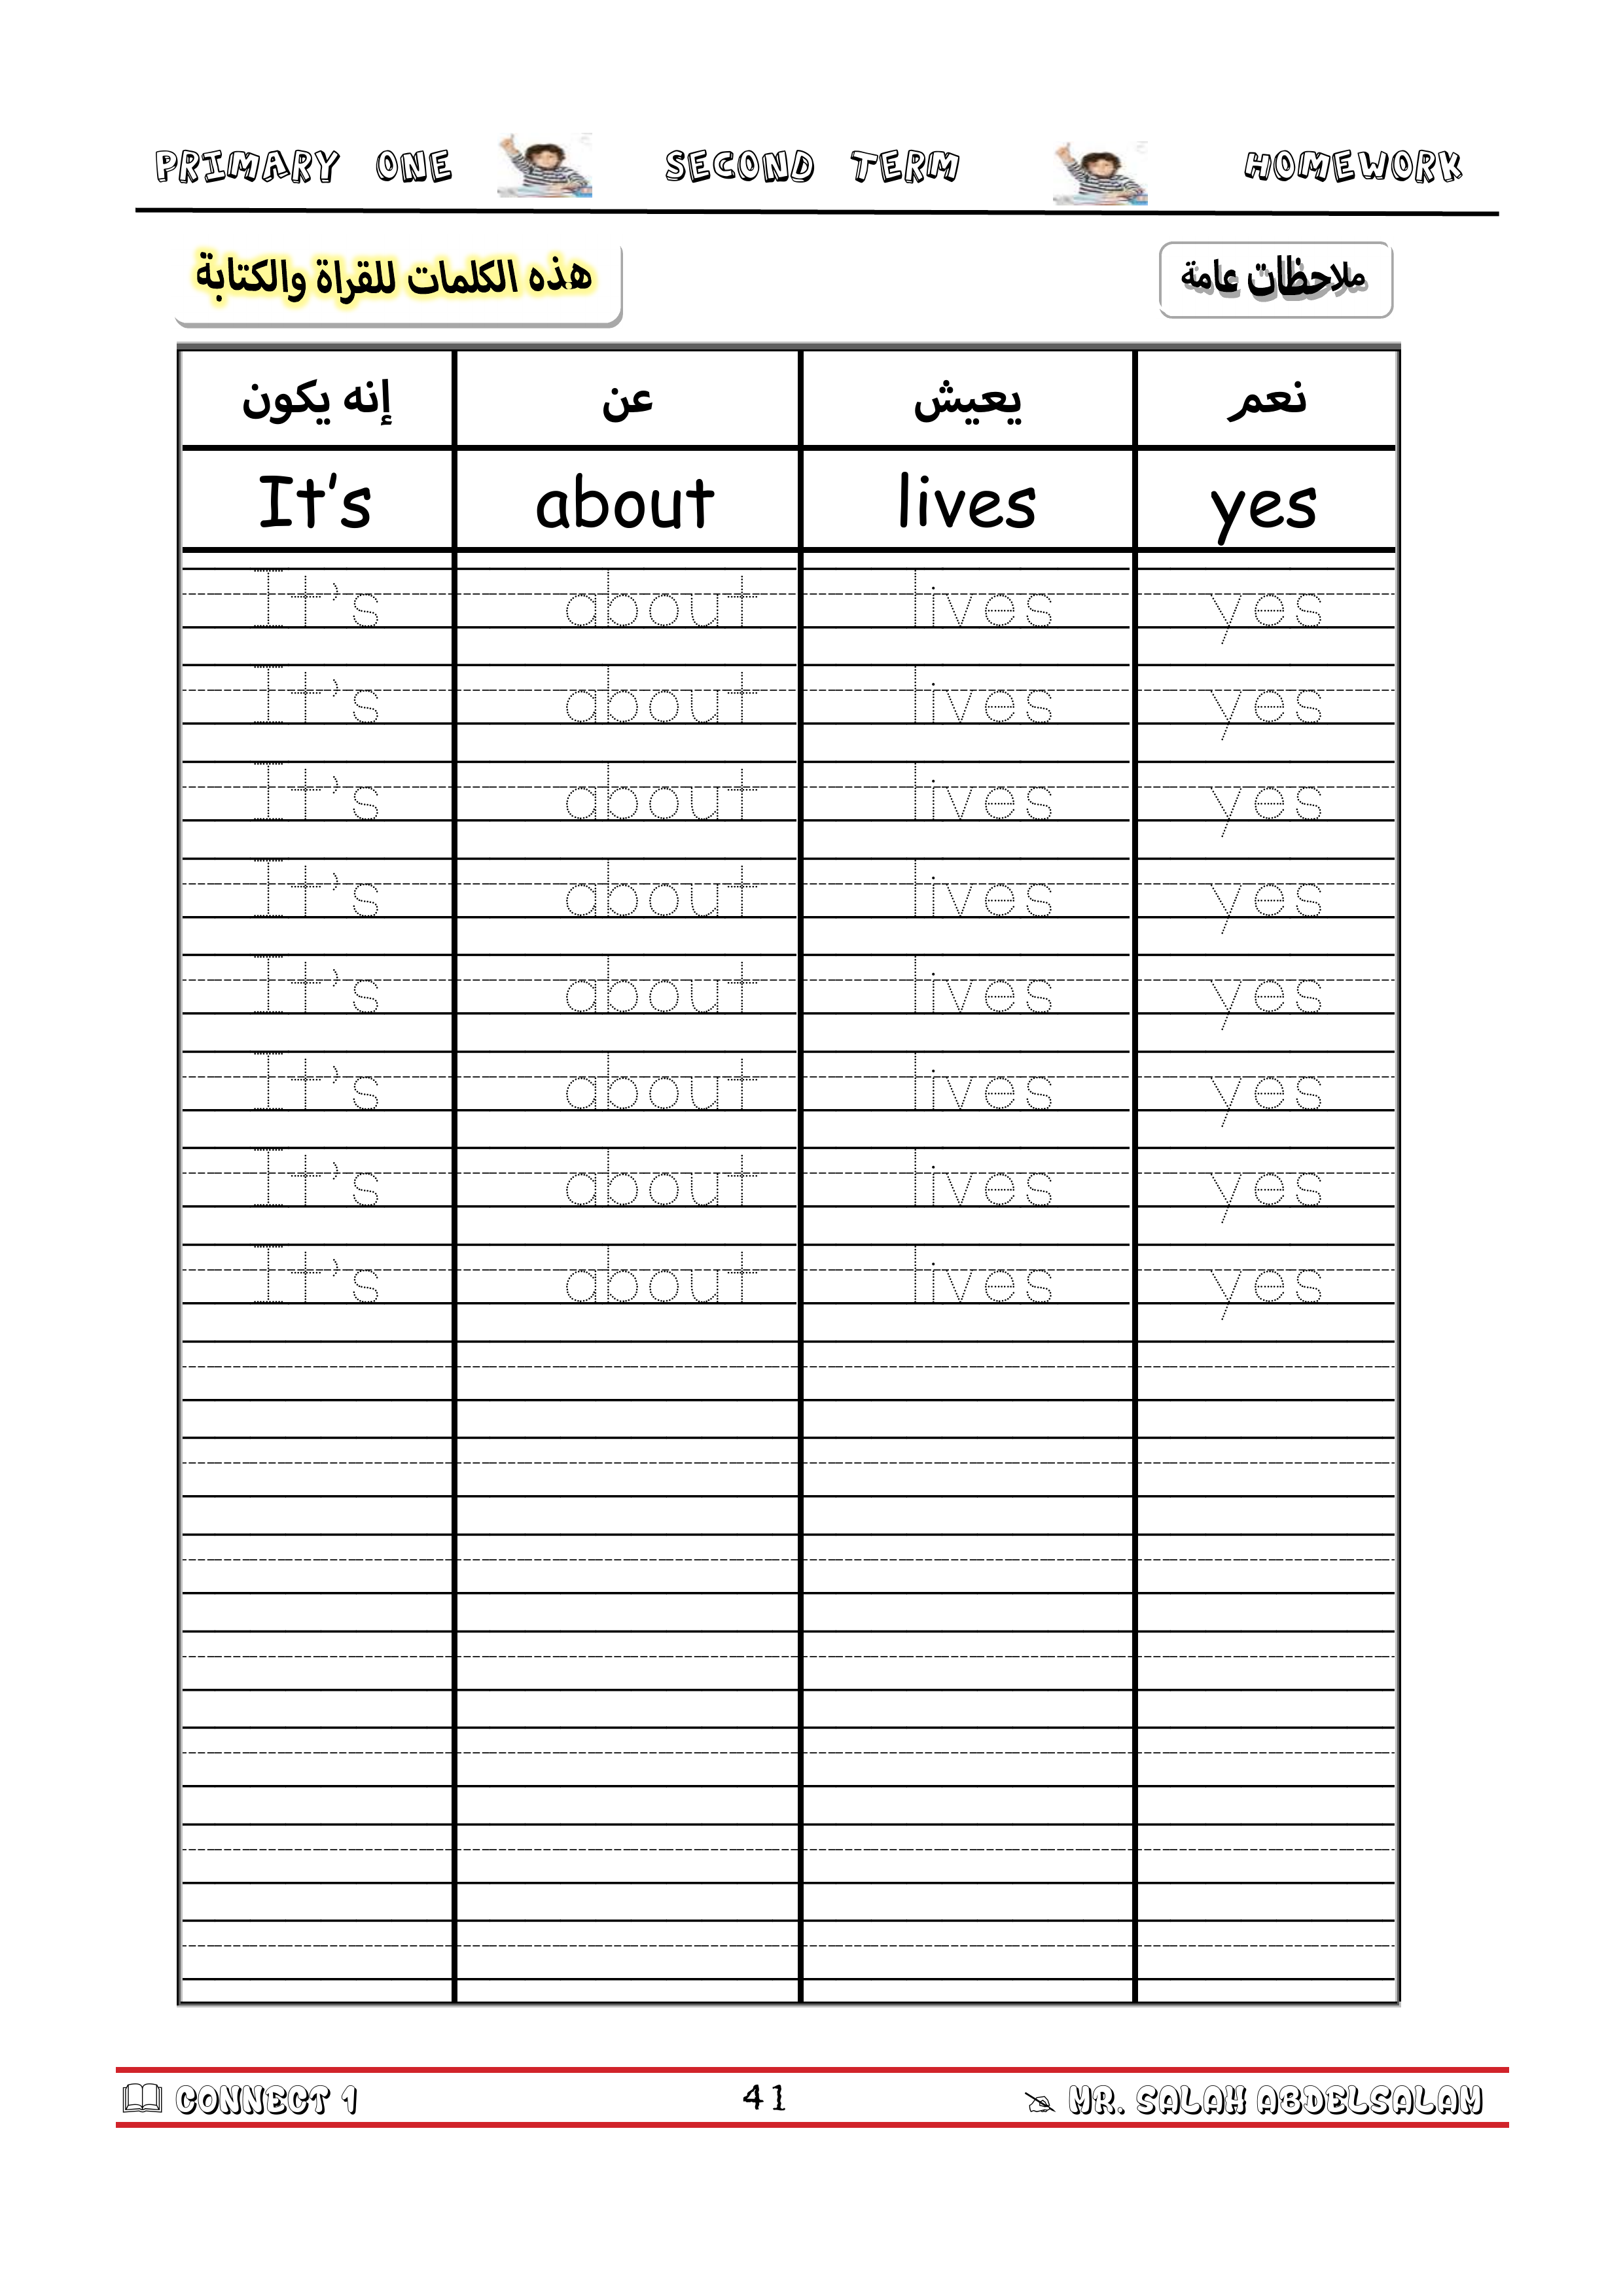 PRIMARY ONE SECOND TERM HOMEWORK
ملاحظات عامة هذه الكلمات للقراة والكتابة
إنه يكون عن يعيش نعم
It's about lives yes
It's about lives yes
It's about lives yes
It's about lives yes
It's about lives yes
It's about lives yes
It's about lives yes
It's about lives yes
It's about lives yes
CONNECT 1 41 MR. SALAH ABDELSALAM